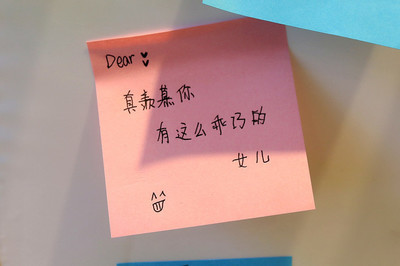 Dear
真羡慕你
有这么乖巧的
女儿